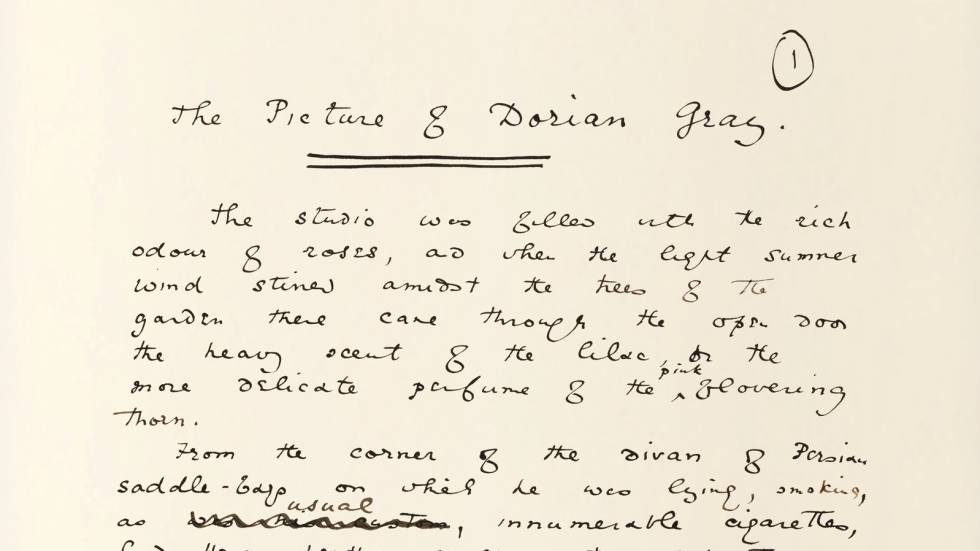 1
The Picture of Dorian Gray.
The studio was filled with the rich
odour of roses, and when the light summer
wind stirred amidst the trees of the
garden there came through the open door
the heavy scent of the lilac, or the
more delicate perfume of the pink flowering
thorn.
From the corner of the divan of Persian
saddle-bags on which he was lying, smoking,
as usual, innumerable cigarettes,